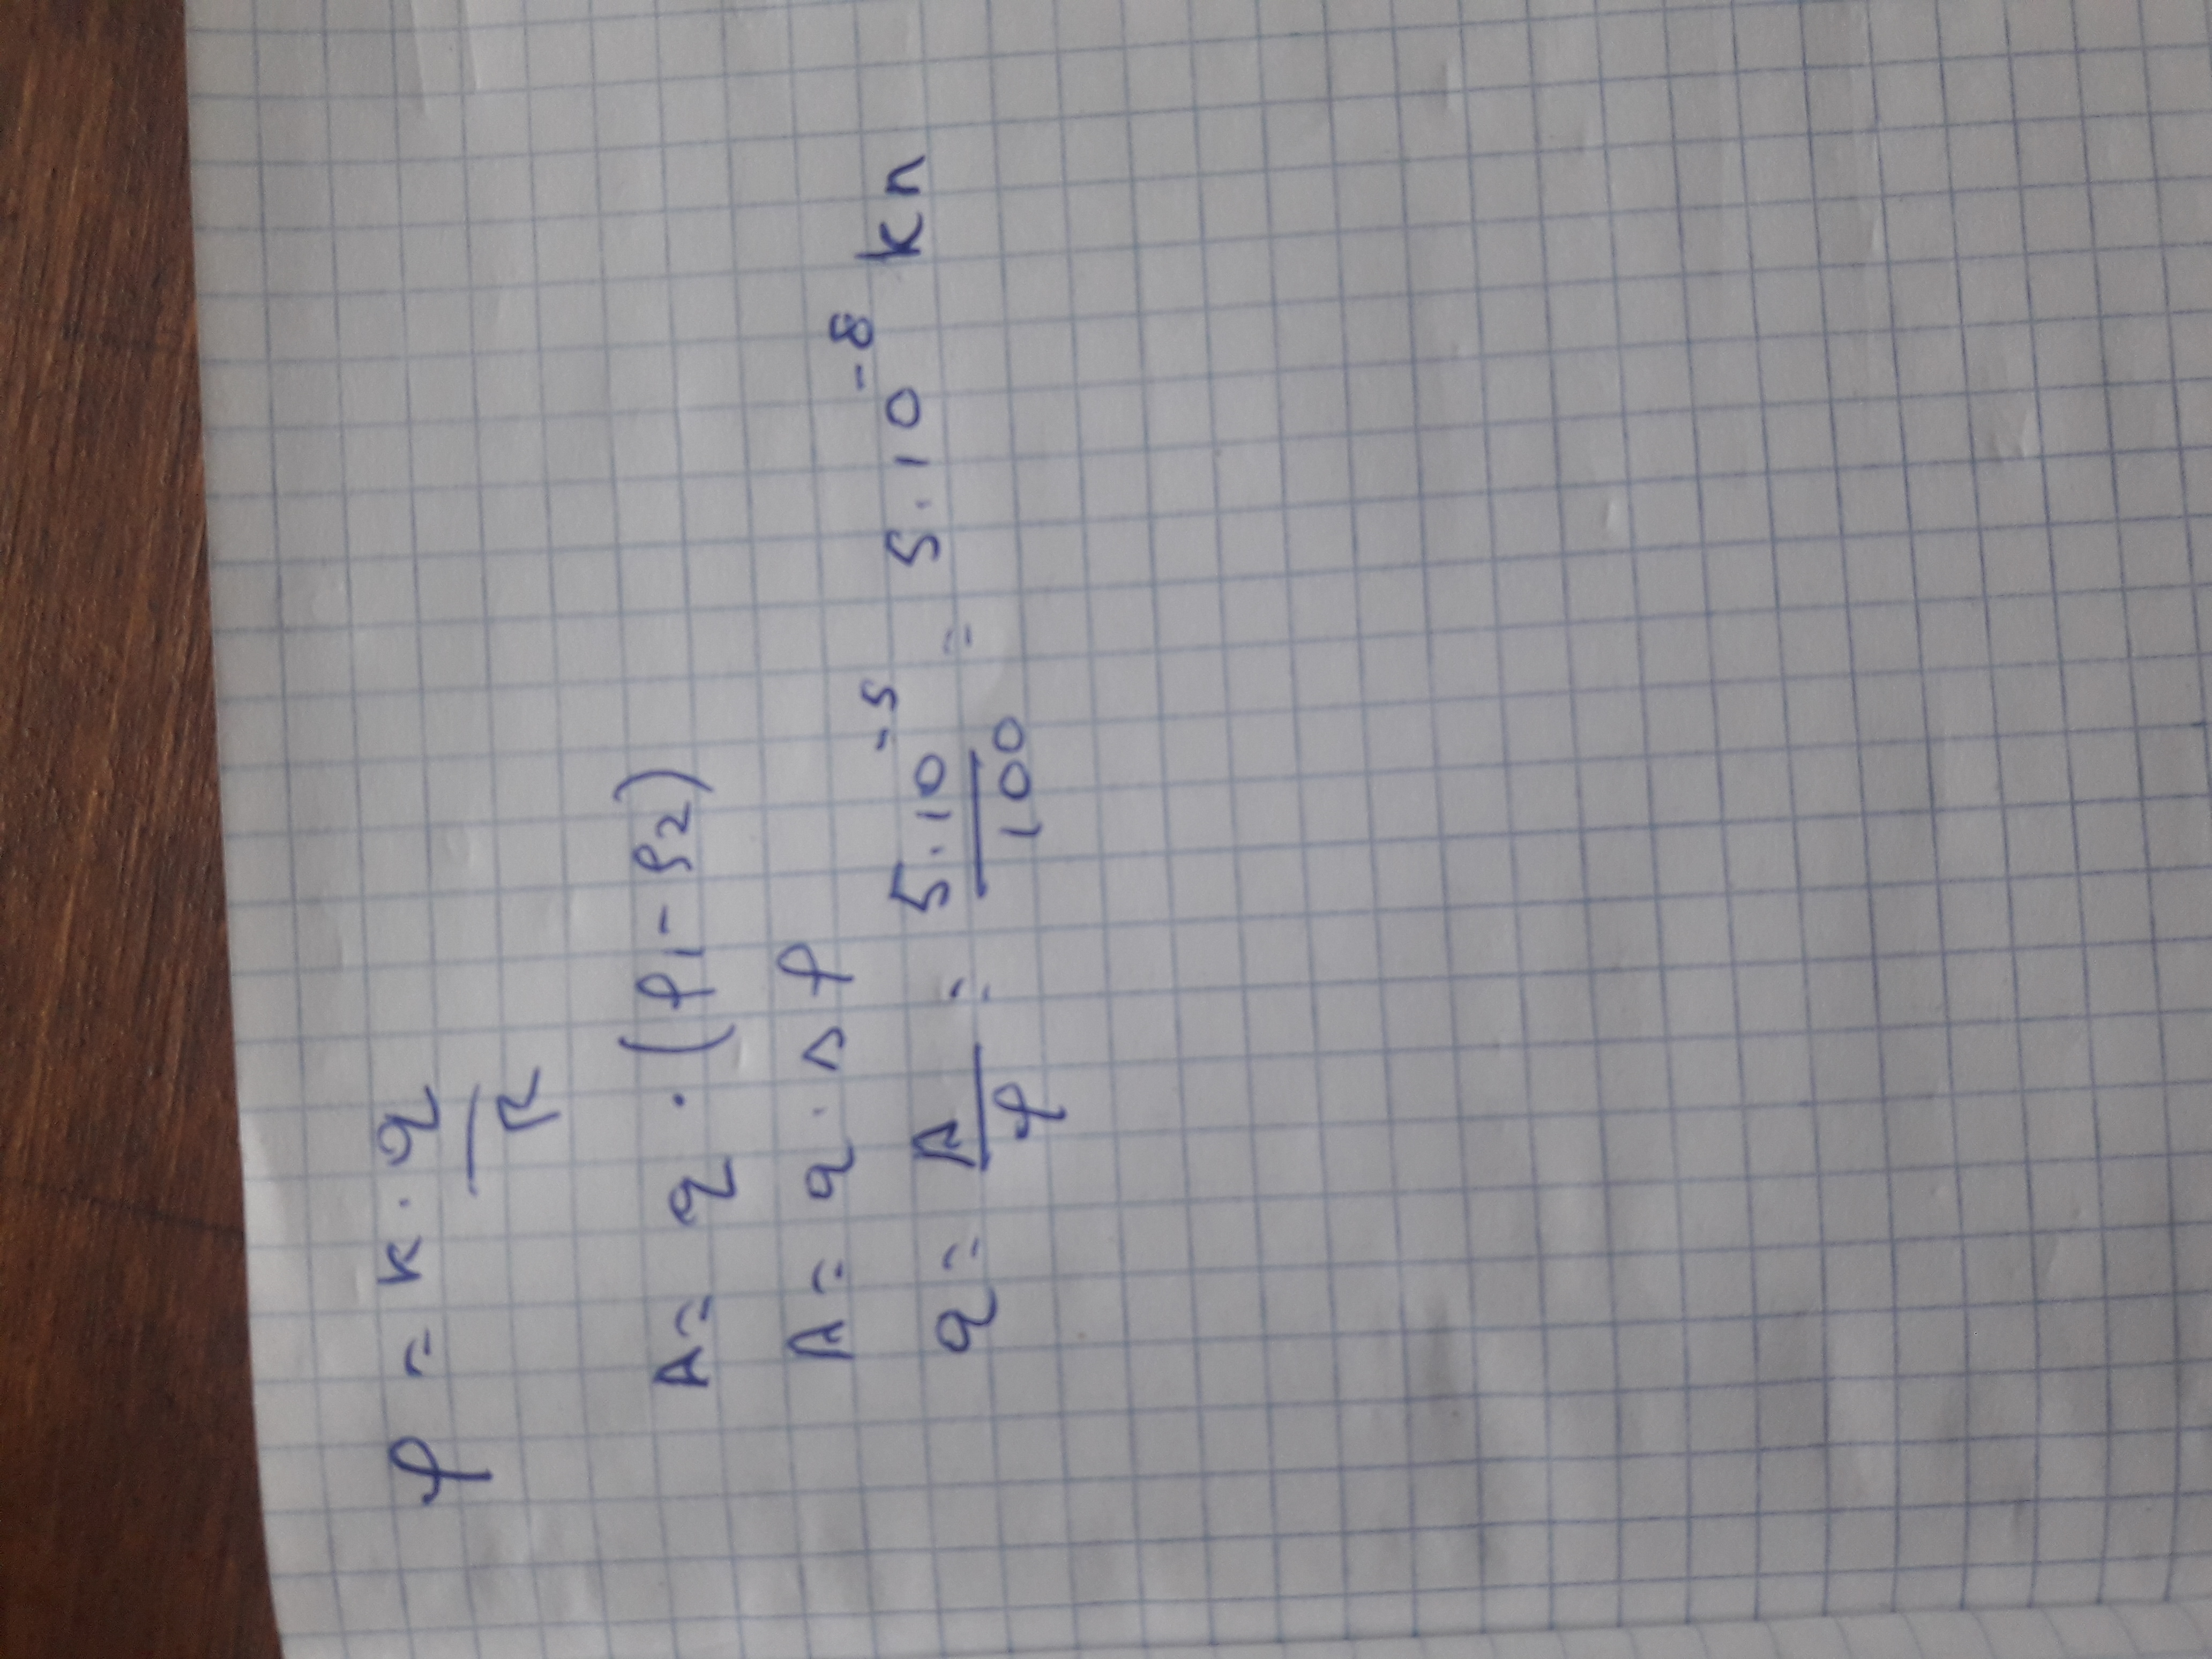 φ = k · q/R
A = q · (φ1 - φ2)
A = q · Δ φ
q = A/φ = 5·10^-5/100 = 5·10^-8 кл